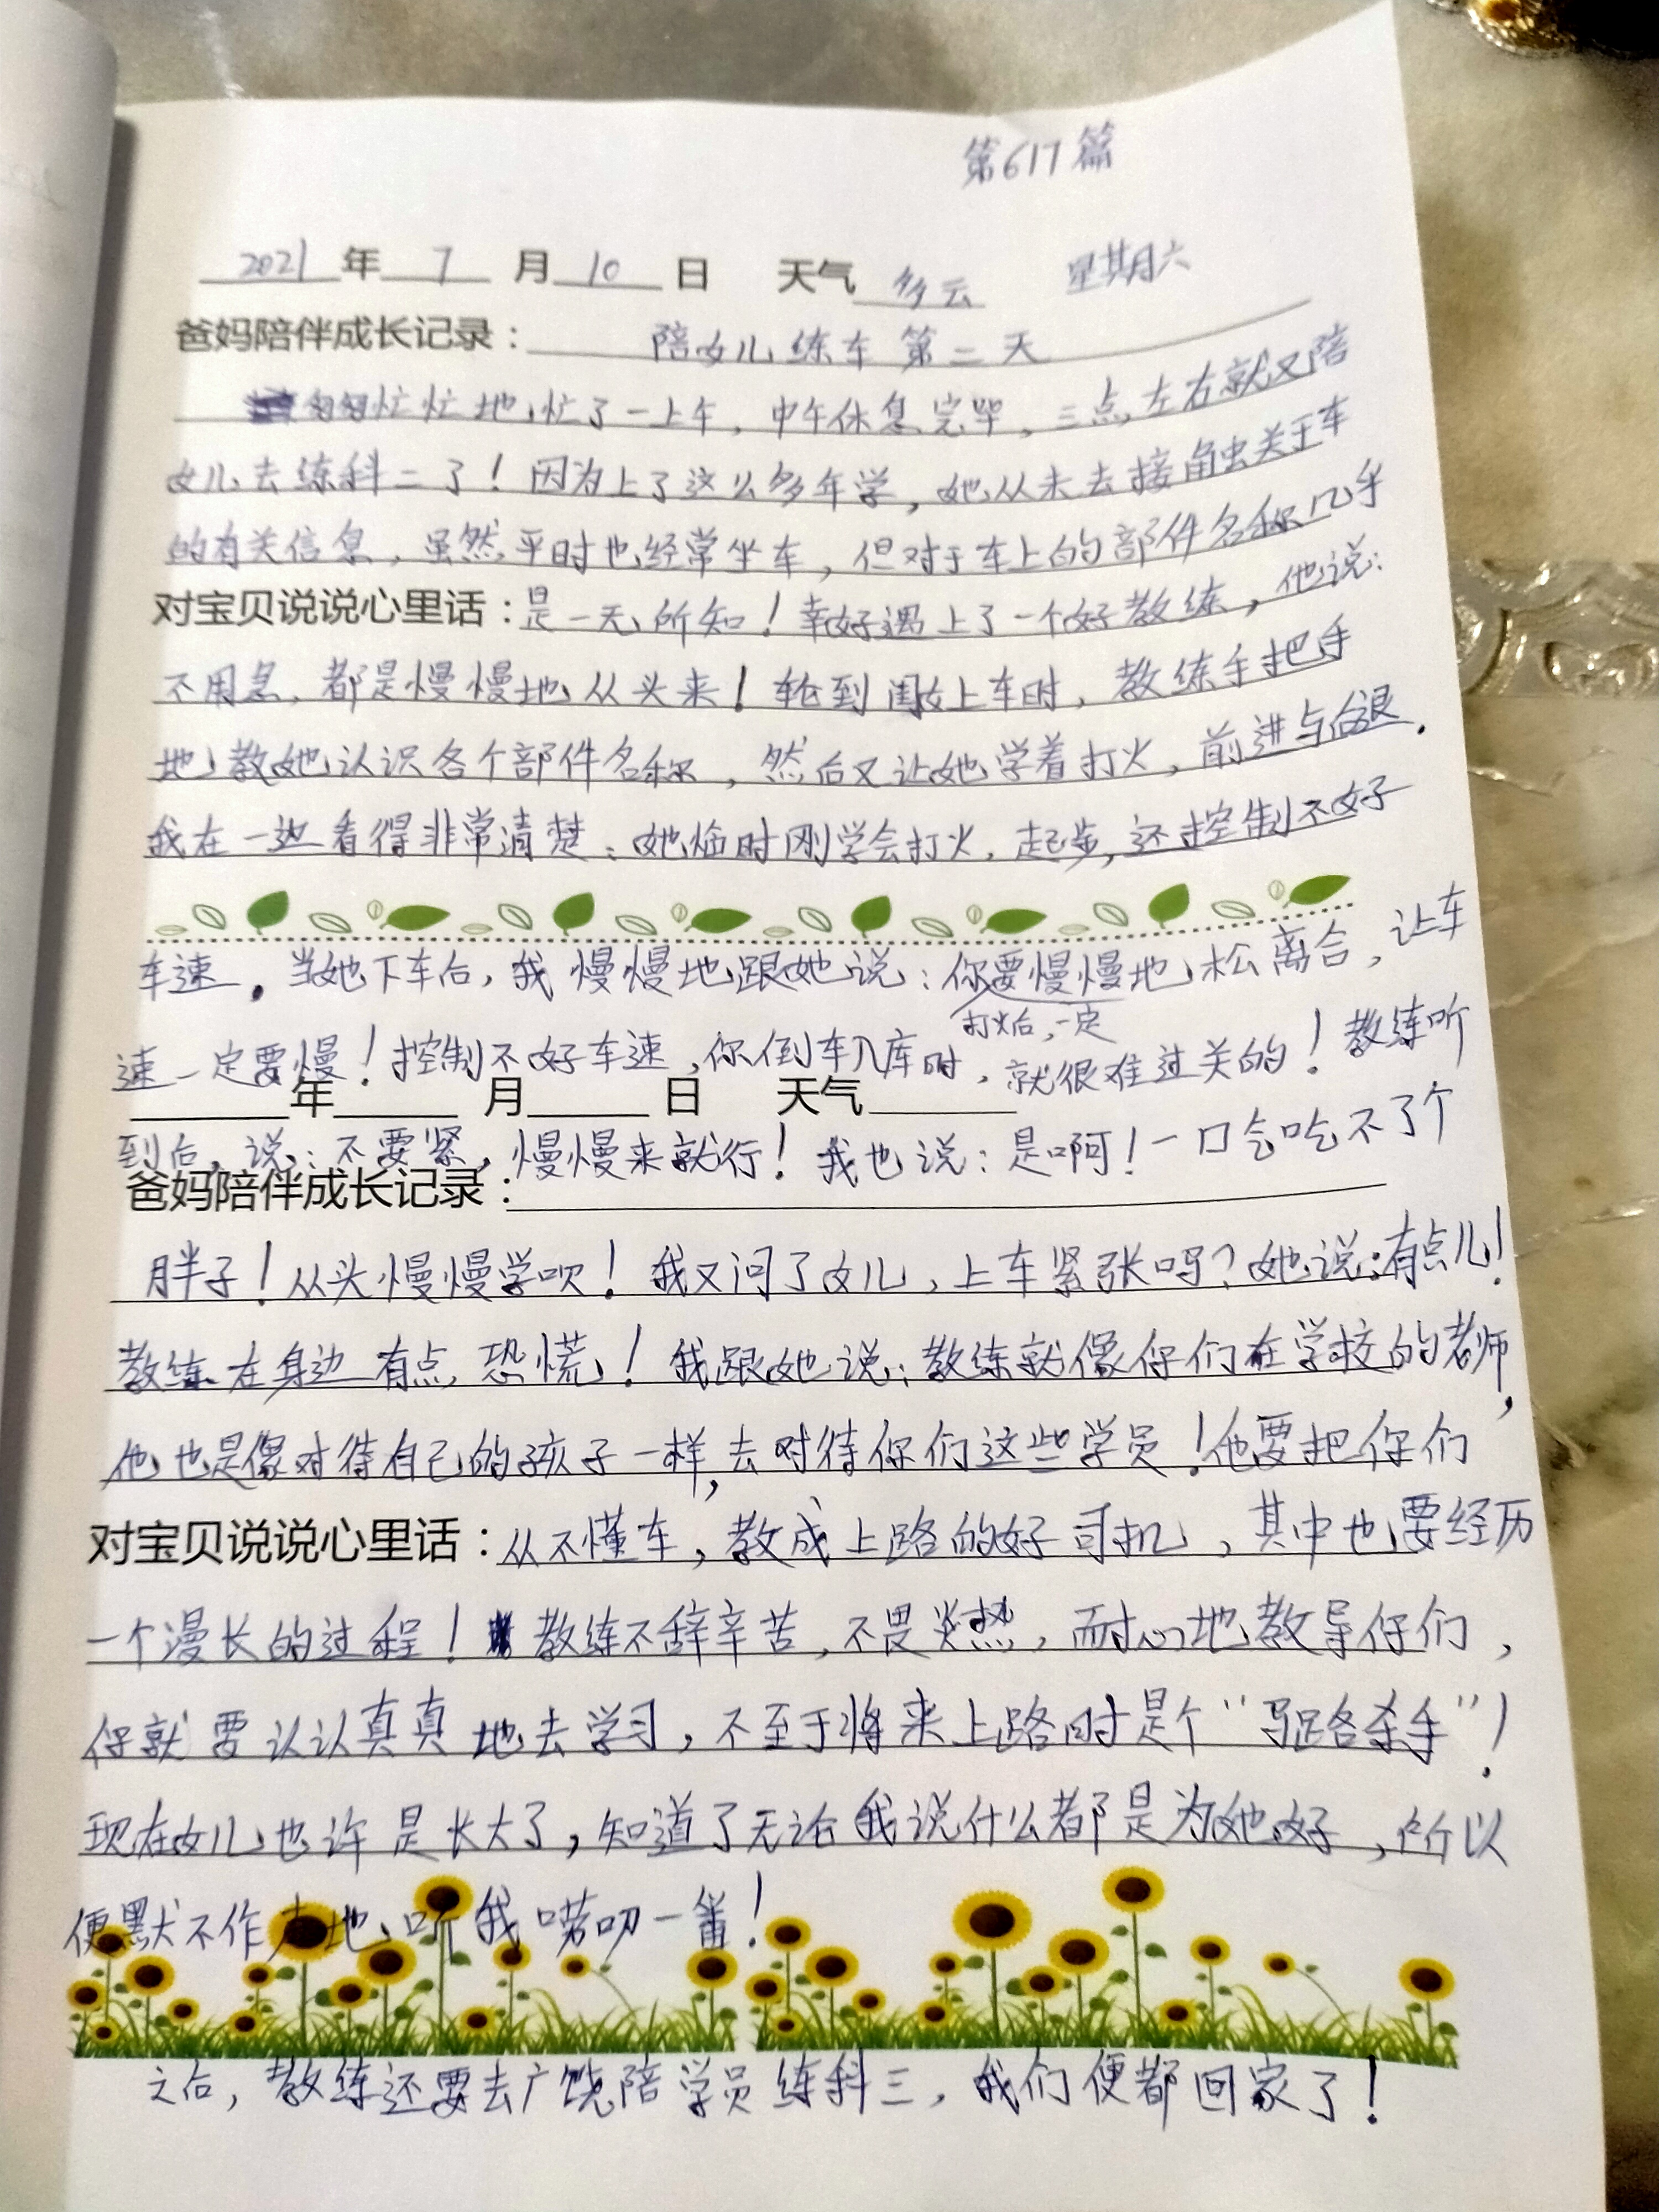 第617篇
2021年7月10日 天气多云 星期六
爸妈陪伴成长记录：陪女儿练车第二天
匆匆忙忙地忙了一上午，中午休息完毕，三点左右就又陪
女儿去练科二了！因为上了这么多年学，她从未去接触关于车
的有关信息，虽然平时也经常坐车，但对于车上的部件名称几乎
对宝贝说说心里话：是一无所知！幸好遇上了一个好教练，他说：
不用急，都是慢慢地从头来！轮到闺女上车时，教练手把手
地教她认识各个部件名称，然后又让她学着打火，前进与后退.
我在一边看得非常清楚：她临时刚学会打火，起步，还控制不好
车速。当她下车后，我慢慢地跟她说：你要慢慢地松离合，让车
打火后，一定
速一定要慢！控制不好车速，你倒车入库时，就很难过关的！教练听
年 月 日 天气
到后，说：不要紧，慢慢来就行！我也说：是啊！一口气吃不了个
爸妈陪伴成长记录：
胖子！从头慢慢学呗！我又问了女儿，上车紧张吗？她说：有点儿！
教练在身边有点恐慌！我跟她说：教练就像你们在学校的老师，
他也是像对待自己的孩子一样，去对待你们这些学员！他要把你们
对宝贝说说心里话：从不懂车，教成上路的好司机，其中也要经历
一个漫长的过程！教练不辞辛苦，不畏炎热，耐心地教导你们，
你就要认认真真地去学习，不至于将来上路时是个“马路杀手”！
现在女儿也许是长大了，知道了无论我说什么都是为她好，所以
便默不作声地听我唠叨一番！
之后，教练还要去广饶陪学员练科三，我们便都回家了！